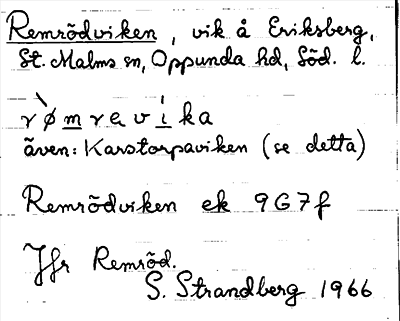 Remrödviken, vik å Eriksberg,
St. Malms sn, Oppunda hd, Söd. l.
rø̀mrevíka
även: Karstorpaviken (se detta)
Remrödviken ek 9G7f
Jfr Remröd.
S. Strandberg 1966